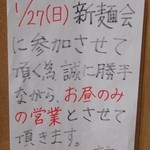 1/27(日)新麺会
に参加させて
頂く為誠に勝手
ながら、お昼のみ
の営業とさせて
頂きます。